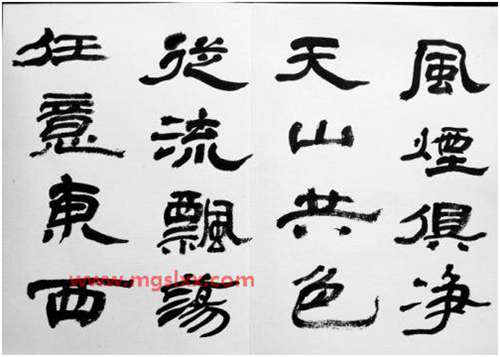 風煙俱净
天山共色
從流飄蕩
任意東西
www.mgslxx.com